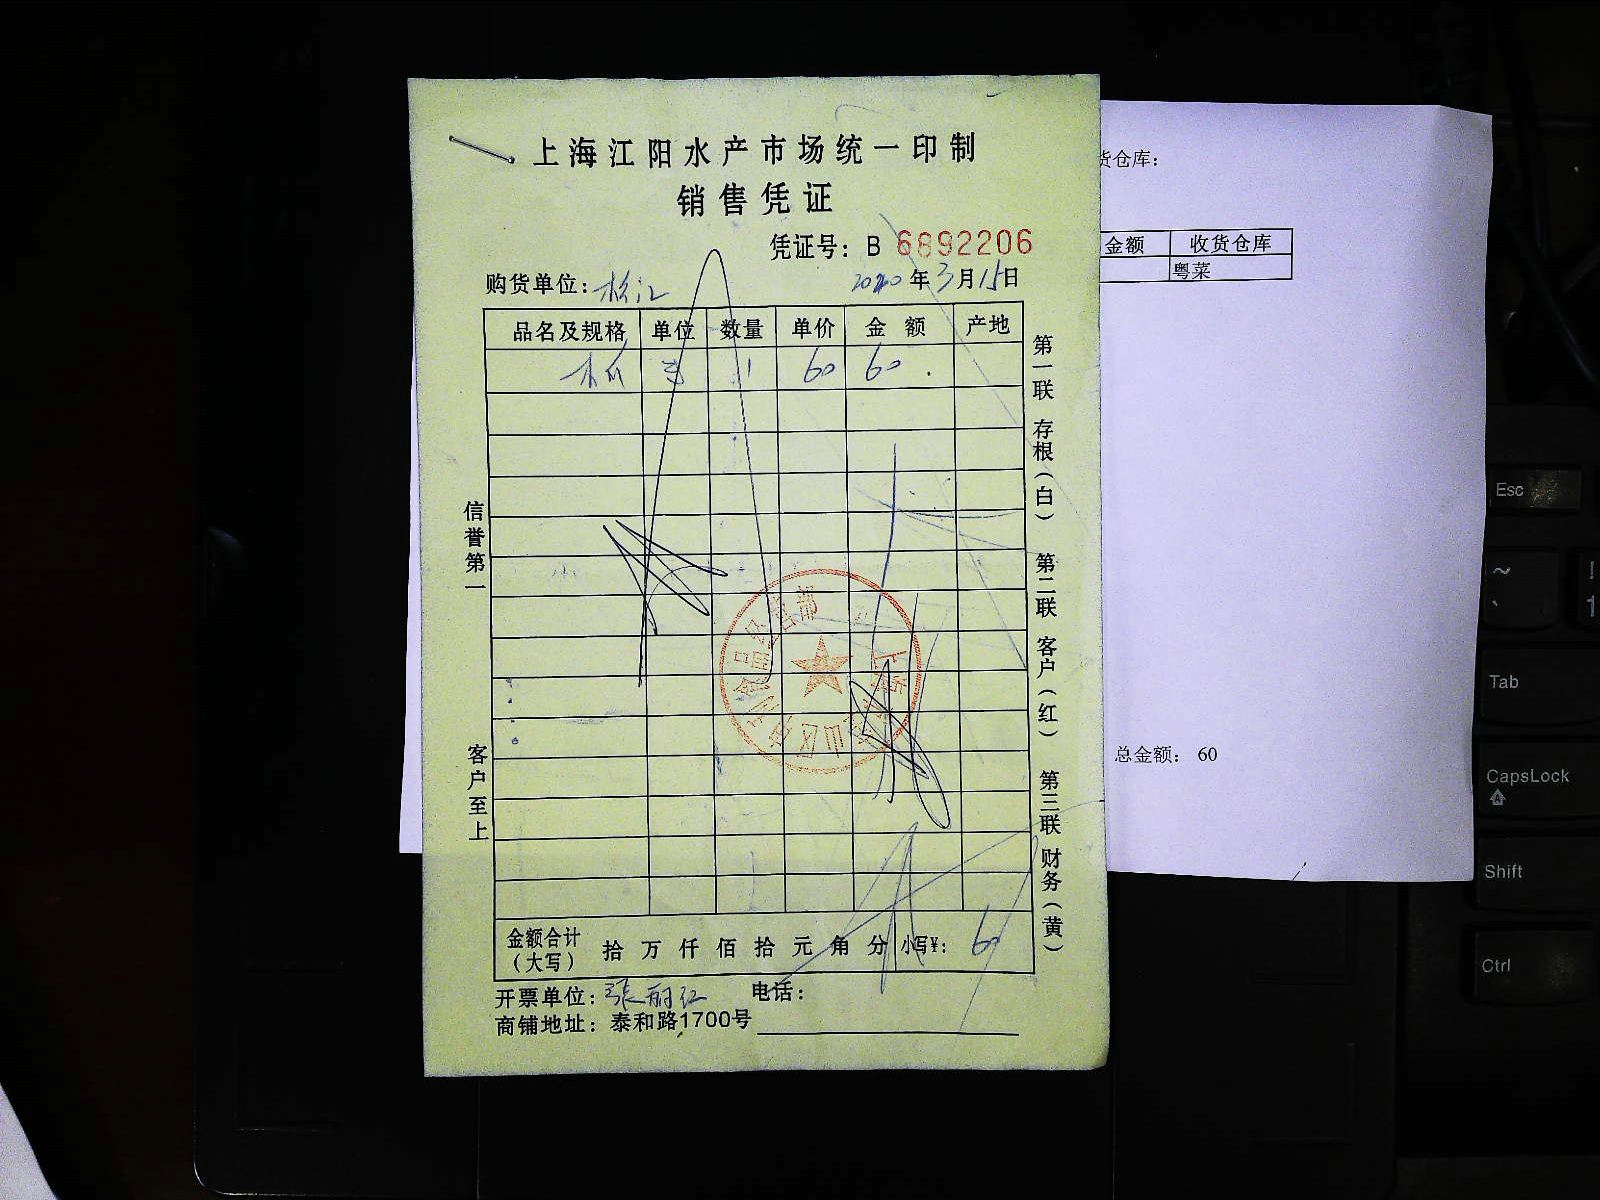 上海江阳水产市场统一印制
销售凭证
凭证号: B 6892206
购货单位: 松江 2020年3月15日
品名及规格 单位 数量 单价 金额 产地
1 60 60
信誉第一 客户至上
第一联 存根(白) 第二联 客户(红) 第三联 财务(黄)
金额合计(大写) 拾 万 仟 佰 拾 元 角 分 小写¥: 60
开票单位: 张丽红 电话:
商铺地址: 泰和路1700号
货仓库:
金额 收货仓库
粤菜
总金额: 60
Esc
~
`
!
1
Tab
CapsLock
Shift
Ctrl